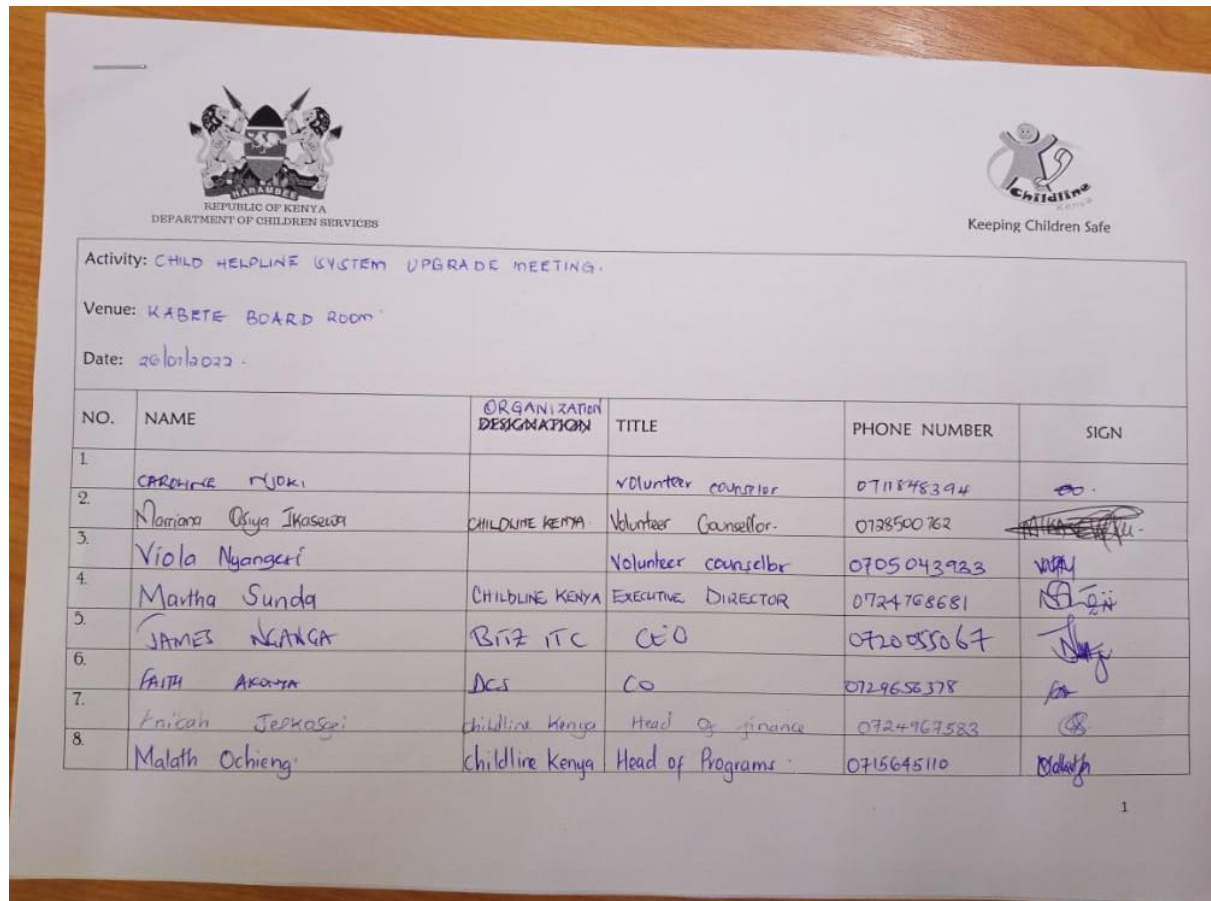 HARAMBEE
REPUBLIC OF KENYA
DEPARTMENT OF CHILDREN SERVICES
Childline
Kenya
Keeping Children Safe
Activity: CHILD HELPLINE SYSTEM UPGRADE MEETING.
Venue: KABETE BOARD ROOM
Date:
NO. NAME ORGANIZATION DESIGNATION TITLE PHONE NUMBER SIGN
1. CAROLINE NJOKI Volunteer counselor 0711848394
2. Marriana Osiya Ikasewa CHILDLINE KENYA. Volunteer Counsellor. 0728500762
3. Viola Nyangeri Volunteer counsellor 0705043923
4. Martha Sunda CHILDLINE KENYA EXECUTIVE DIRECTOR 0724768681
5. JAMES NGANGA BITZ ITC CEO 0720055067
6. FAITH DCS CO 0729656378
7. childline Kenya Head of finance 0724967583
8. Malath Ochieng childline Kenya Head of Programs 0715645110
1